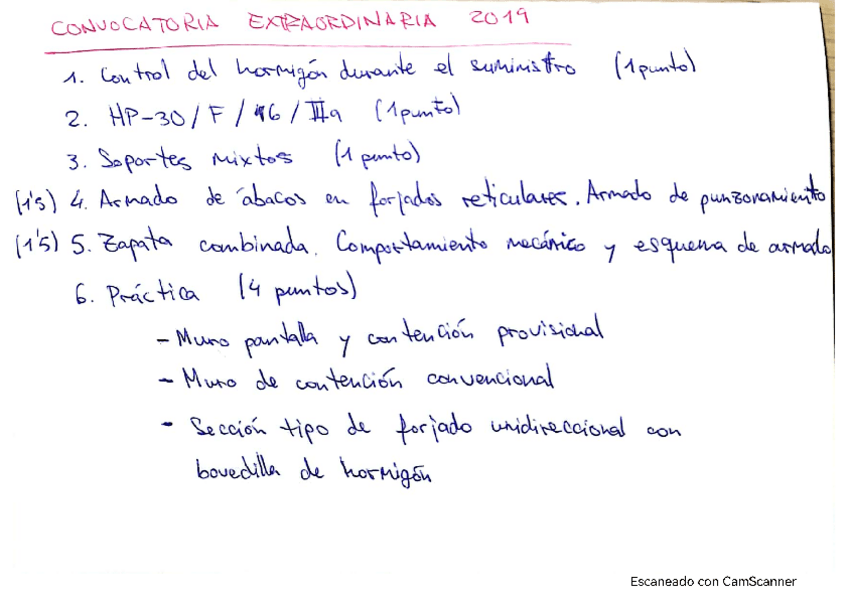 CONVOCATORIA EXTRAORDINARIA 2019
1. Control del hormigón durante el suministro (1 punto)
2. HP-30/F/16/IIa (1 punto)
3. Soportes mixtos (1 punto)
(1'5) 4. Armado de ábacos en forjados reticulares. Armado de punzonamiento
(1'5) 5. Zapata combinada. Comportamiento mecánico y esquema de armado
6. Práctica (4 puntos)
- Muro pantalla y contención provisional
- Muro de contención convencional
- Sección tipo de forjado unidireccional con
bovedilla de hormigón
Escaneado con CamScanner